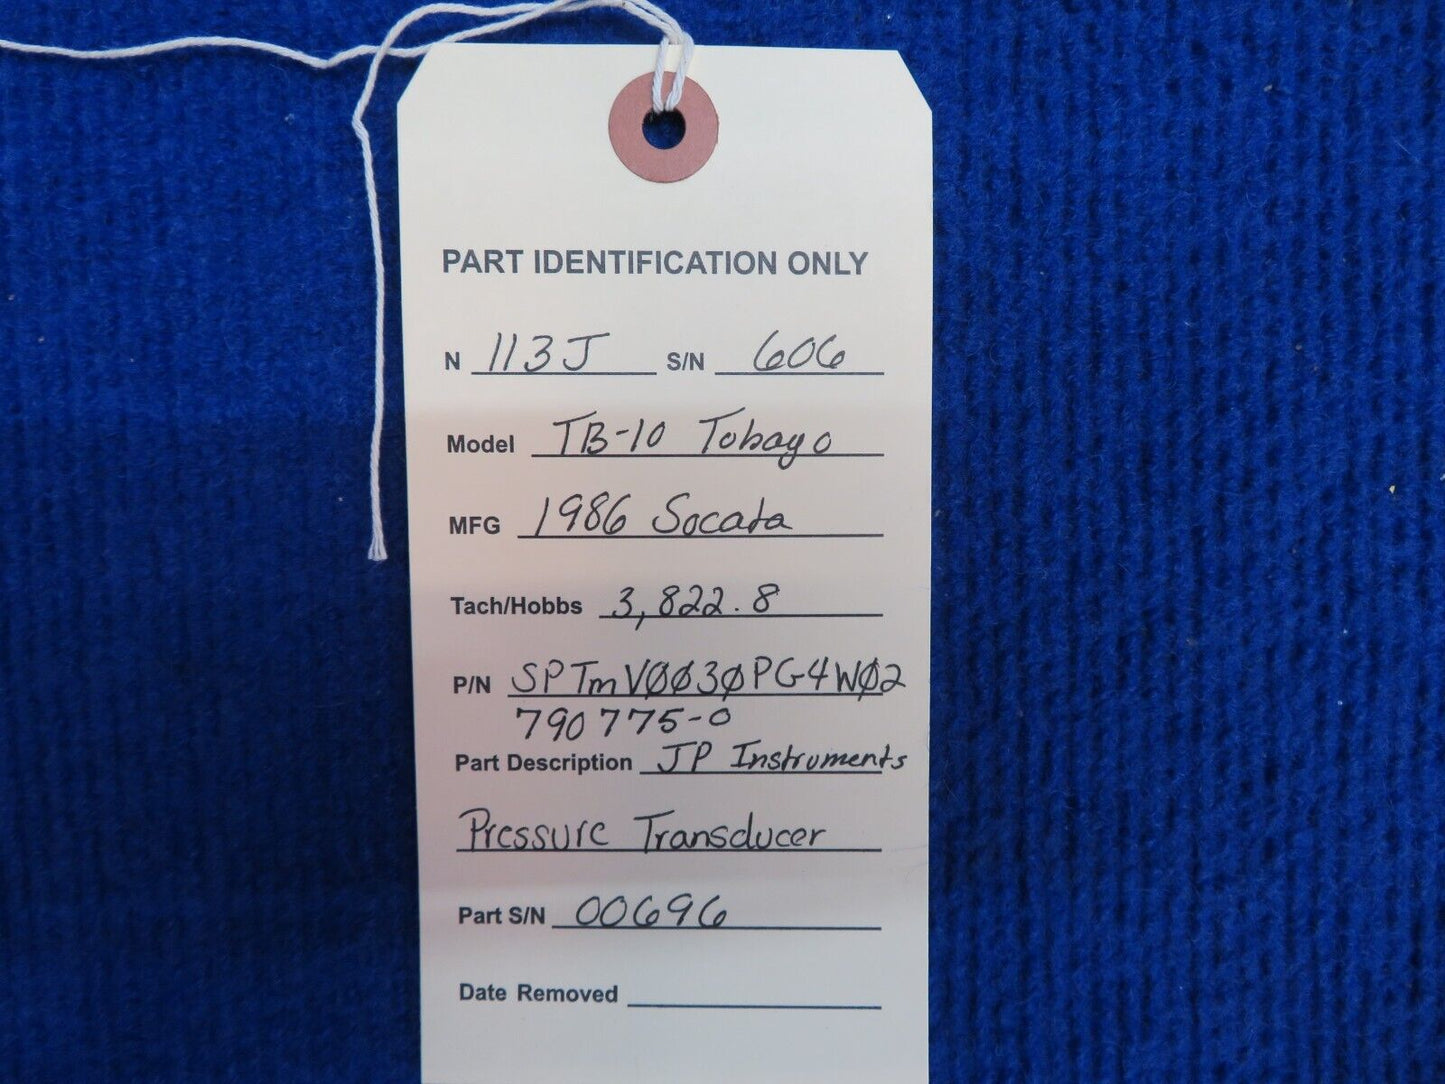 PART IDENTIFICATION ONLY
N 113J S/N 606
Model TB-10 Tobago
MFG 1986 Socata
Tach/Hobbs 3,822.8
P/N SPTmVØØ3ØPG4WØ2
790775-0
Part Description JP Instruments
Pressure Transducer
Part S/N 00696
Date Removed